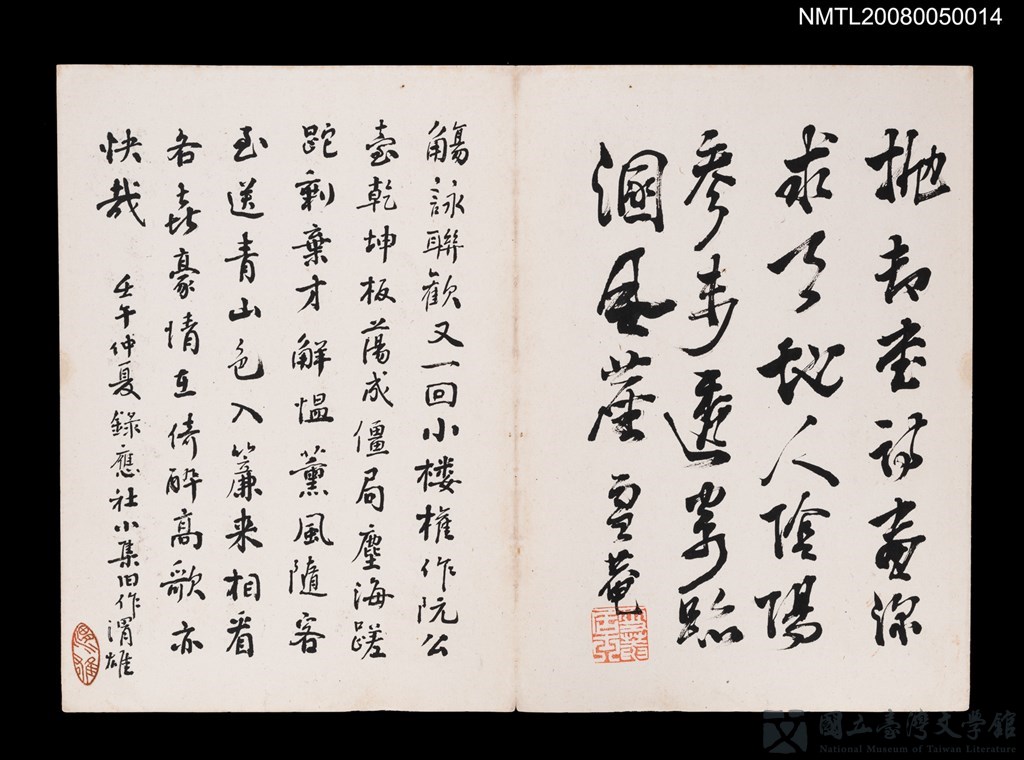 NMTL20080050014
拋却奎詩畫深
求天地人陰陽
參未透寄跡
溷風塵 雪菴
觴詠聯歡又一回小楼権作阮公
臺乾坤板蕩成僵局塵海蹉
跎剩棄才解慍薰風隨客
至送青山色入簾来相看
各喜豪情在倚醉高歌亦
快哉
壬午仲夏錄應社小集旧作渭雄
渭雄
國立臺灣文學館
National Museum of Taiwan Literature